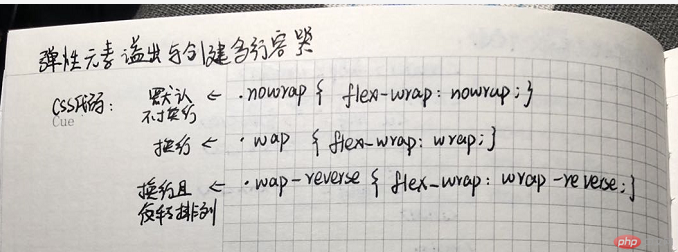 弹性元素溢出与创建多行容器
CSS代码: 默认 ← .nowrap { flex-wrap: nowrap; }
Cue 不换行
换行 ← .wap { flex-wrap: wrap; }
换行且 ← .wap-reverse { flex-wrap: wrap-reverse; }
反转排列
php